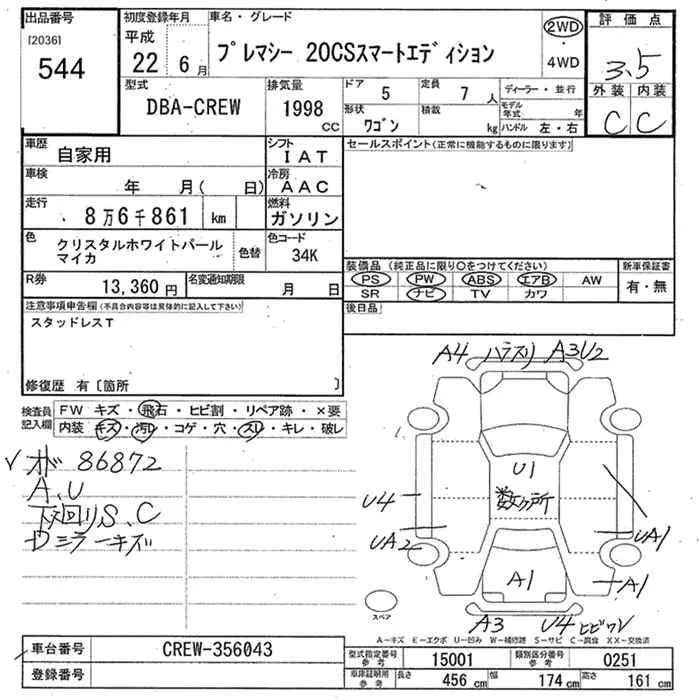 出品番号
[2036]
544
初度登録年月
平成
22 6月
車名・グレード
プレマシー 20CSスマートエディション
2WD
・
4WD
評価点
3.5
外装 内装
C C
型式
DBA-CREW
排気量
1998
CC
ドア
5
定員
7 人
形状
ワゴン
積載
kg
ディーラー・並行
モデル年式 年
ハンドル 左・右
車歴
自家用
シフト
IAT
車検
年 月( 日)
冷房
AAC
走行
8万6千861 km
燃料
ガソリン
色
クリスタルホワイトパール
マイカ
色替
色コード
34K
R券
13,360円
名変通知期限
月 日
セールスポイント(正常に機能するものに限ります)
装備品 (純正品に限り○をつけてください)
PS PW ABS エアB AW
SR ナビ TV カワ
新車保証書
有・無
後日品
注意事項申告欄(不具合内容等は具体的に記入して下さい)
スタッドレスT
修復歴 有〔箇所 〕
検査員
記入欄
FW キズ・飛石・ヒビ割・リペア跡・×要
内装 キズ・汚レ・コゲ・穴・スレ・キレ・破レ
86872
A、U
下回りS、C
Dミラーキズ
A4 ハラスリ A3U2
U1
数ヶ所
U4
UA2
UA1
A1
A1
スペア
A3 U4 ヒビワレ
A-キズ E-エクボ U-凹み W-補修跡 S-サビ C-腐食 XX-交換済
車台番号
CREW-356043
登録番号
型式指定番号
参考
15001
類別区分番号
参考
0251
車庫証明用
参考
長さ
456 cm
幅
174 cm
高さ
161 cm